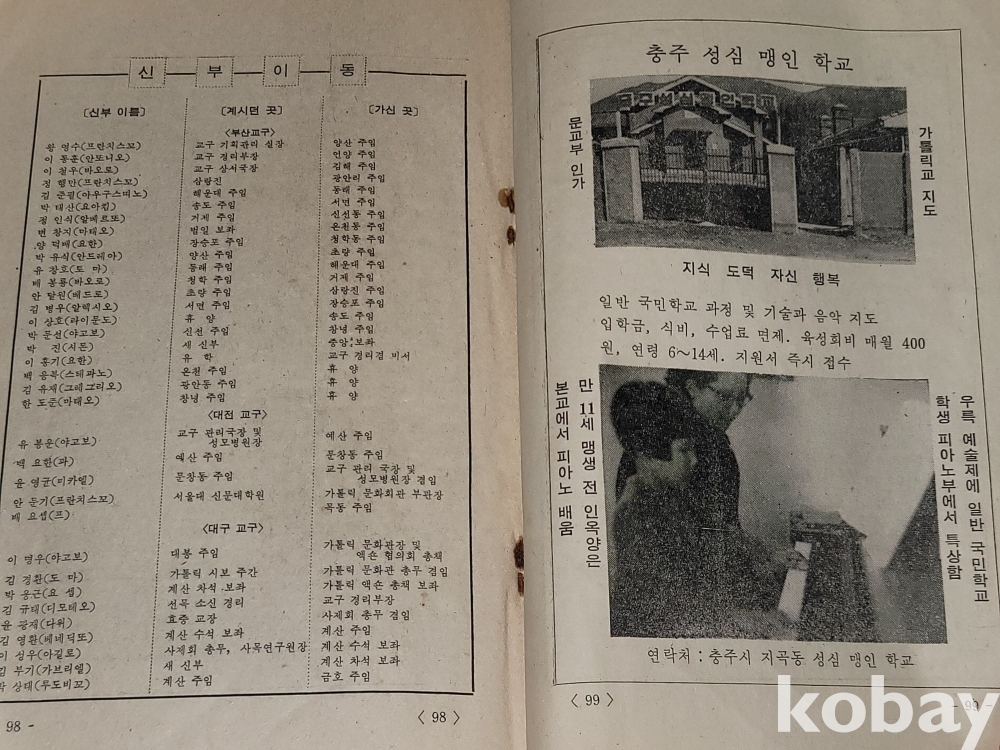 신 부 이 동
[신부 이름] [계시던 곳] [가신 곳]
<부산교구>
왕 영수(프란치스꼬) 교구 기획관리 실장 양산 주임
이 동훈(안또니오) 교구 경리부장 언양 주임
이 철우(바오로) 교구 상서국장 김해 주임
정 행만(프란치스꼬) 삼랑진 광안리 주임
김 준필(아우구스띠노) 해운대 주임 동래 주임
박 태산(요아킴) 송도 주임 서면 주임
정 인식(알베르또) 거제 주임 신선동 주임
변 창지(마태오) 범일 보좌 온천동 주임
양 덕배(요한) 장승포 주임 청학동 주임
박 유식(안드레아) 양산 주임 초량 주임
유 창호(도 마) 동래 주임 해운대 주임
배 봉룡(바오로) 청학 주임 거제 주임
안 달원(베드로) 초량 주임 삼랑진 주임
김 병우(알렉시오) 서면 주임 장승포 주임
이 상호(라이문도) 휴 양 송도 주임
박 문선(야고보) 신선 주임 창녕 주임
박 진(시몬) 새 신부 중앙 보좌
이 홍기(요한) 유 학 교구 경리겸 비서
백 응복(스테파노) 온천 주임 휴 양
김 유재(그레고리오) 광안동 주임 휴 양
한 도준(마태오) 창녕 주임 휴 양
<대전 교구>
유 봉운(야고보) 교구 관리국장 및 성모병원장 예산 주임
백 요한(과) 예산 주임 문창동 주임
윤 영균(미카엘) 문창동 주임 교구 관리 국장 및 성모병원장 겸임
안 둔기(프란치스꼬) 서울대 신문대학원 가톨릭 문화회관 부관장
배 요셉(프) 목동 주임
<대구 교구>
이 명우(야고보) 대봉 주임 가톨릭 문화관장 및 액숀 협의회 총책
김 경환(도 마) 가톨릭 시보 주간 가톨릭 문화관 총무 겸임
박 응근(요 셉) 계산 차석 보좌 가톨릭 액숀 총책 보좌
김 규태(디모테오) 선목 소신 경리 교구 경리부장
윤 광재(다위) 효중 교장 사제회 총무 겸임
김 영환(베네딕또) 계산 수석 보좌 계산 주임
이 성우(아길로) 사제회 총무, 사목연구원장 계산 수석 보좌
김 부기(가브리엘) 새 신부 계산 차석 보좌
상태(루도비꼬) 계산 주임 금호 주임
98 -
〈 98 〉
충주 성심 맹인 학교
문교부 인가
충주성심맹인학교
가톨릭교 지도
지식 도덕 자신 행복
일반 국민학교 과정 및 기술과 음악 지도
입학금, 식비, 수업료 면제. 육성회비 매월 400
원, 연령 6~14세. 지원서 즉시 접수
만 11세 맹생 전 인옥양은
본교에서 피아노 배움
우륵 예술제에 일반 국민학교
학생 피아노부에서 특상함
연락처 : 충주시 지곡동 성심 맹인 학교
〈 99 〉
- 99 -
kobay